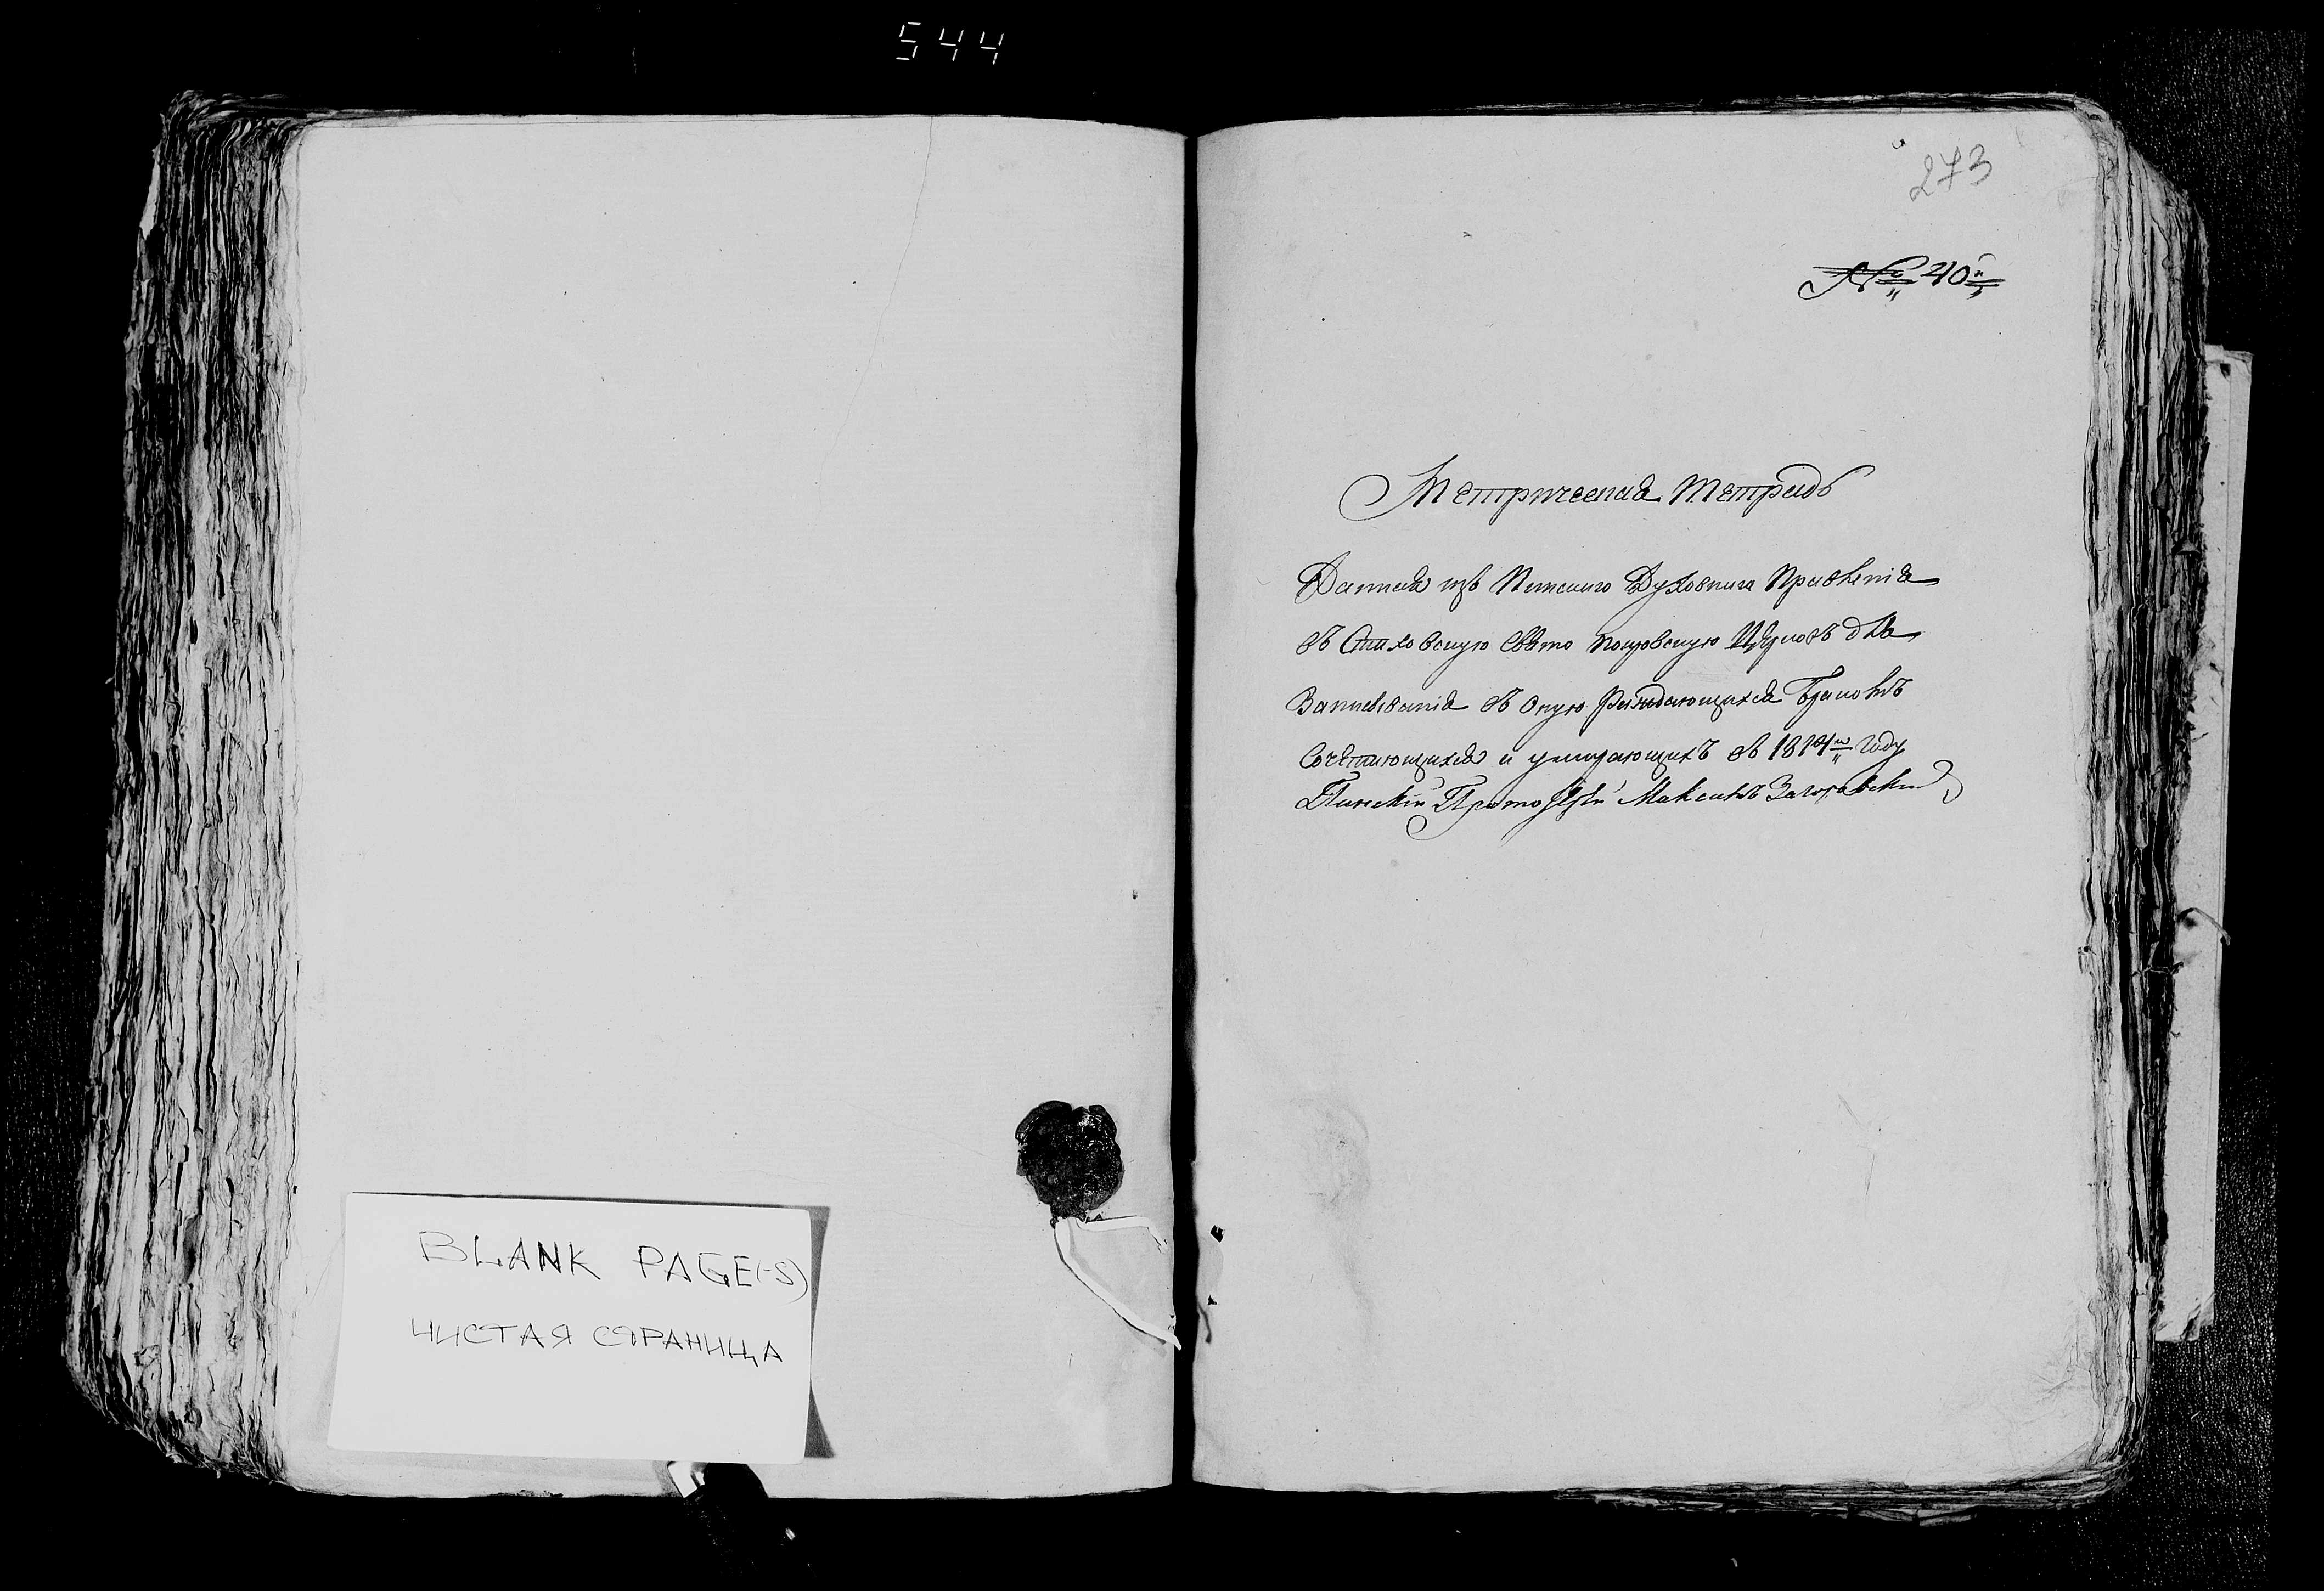 544
BLANK PAGE(-S)
ЧИСТАЯ СТРАНИЦА
273
№ 40й
Метрическая тетрадь
Данная изъ Пинскаго Духовнаго Правленія
въ Стаховскую Свято Покровскую Церковь для
Записыванія въ оную Раждающихся Бракомъ
Сочетающихся и умирающихъ въ 1814м году
Пинскій Протоіерей Максимъ Загоровскій